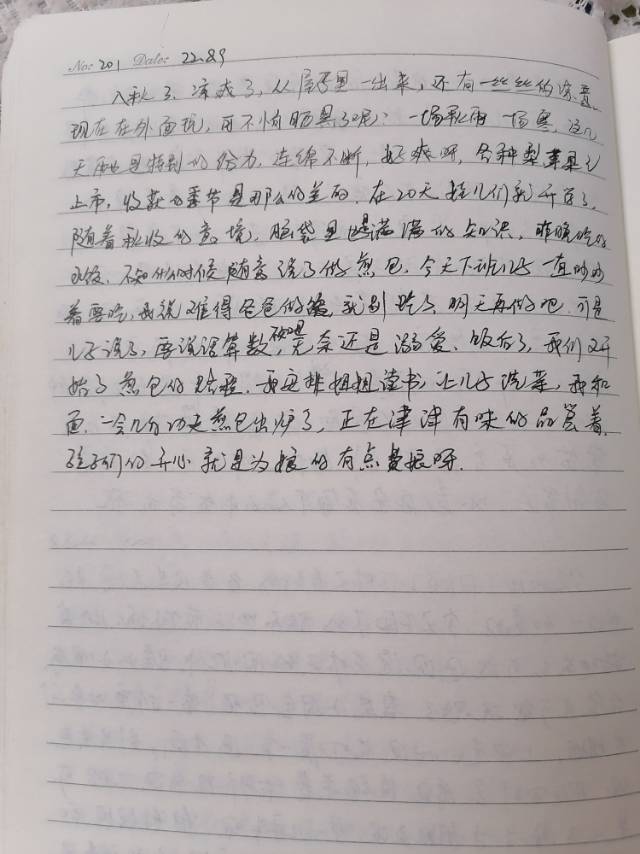 No: 201 Date: 22.8.9
入秋了、凉爽了,从屋子里一出来,还有一丝丝的凉意,
现在在外面玩,可不怕晒黑了呢?一场秋雨一场寒,这几
天雨也是特别的给力,连绵不断,好爽呀,各种梨苹果
上市,收获的季节是那么的美丽,在20天娃儿们就开学了,
随着秋收的意境,脑袋里也是满满的知识,昨晚吃的
水饺,不知什么时候随意说了做煎包,今天下班儿子一直吵吵
着要吃,我说难得爸爸做的饭,我们别吃了,明天再做吧,可是
儿子说了,要说话算数,无奈还是溺爱、饭后了,我们又开
始了煎包的路程,我安排姐姐读书,让儿子洗菜,我和
面,一会儿功夫煎包出炉了,正在津津有味的品尝着,
孩子们的开心就是为娘的有点费娘呀.